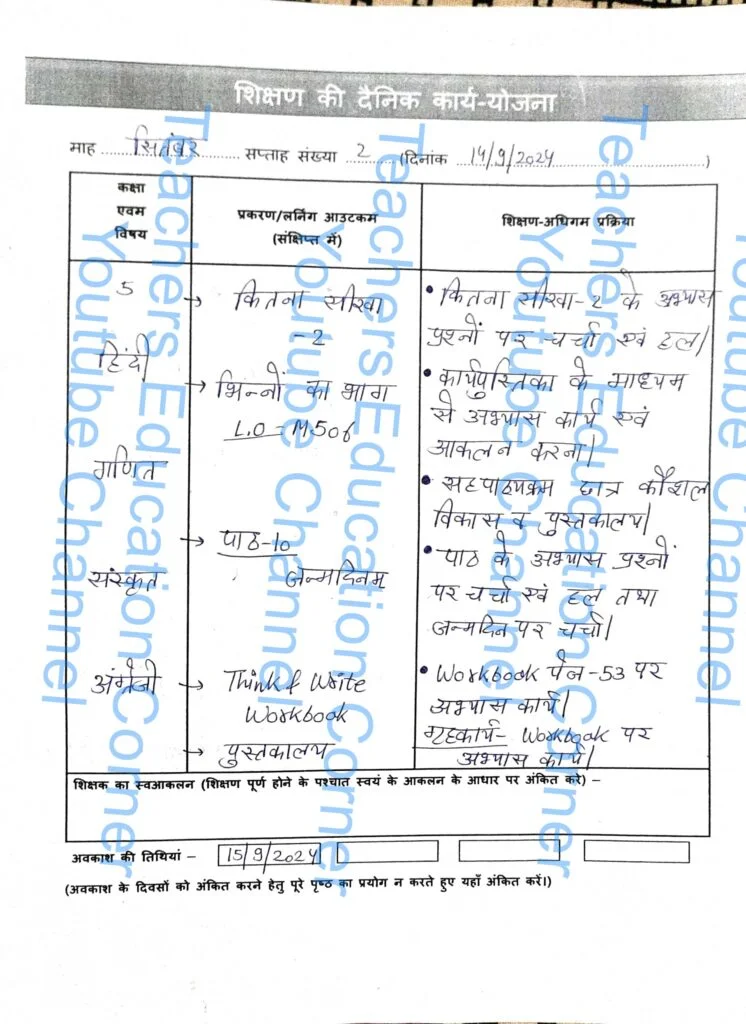 शिक्षण की दैनिक कार्य-योजना
माह सितंबर सप्ताह संख्या 2 (दिनांक 14/9/2024)
कक्षा
एवम
विषय
प्रकरण/लर्निंग आउटकम
(संक्षिप्त में)
शिक्षण-अधिगम प्रक्रिया
5
हिंदी
गणित
संस्कृत
अंग्रेजी
→ कितना सीखा
-2
→ भिन्नों का भाग
L.O - M506
→ पाठ-10
जन्मदिनम्
→ Think & Write
Workbook
→ पुस्तकालय
• कितना सीखा-2 के अभ्यास
प्रश्नों पर चर्चा एवं हल।
• कार्यपुस्तिका के माध्यम
से अभ्यास कार्य एवं
आकलन करना।
• सहपाठ्यक्रम छात्र कौशल
विकास व पुस्तकालय।
• पाठ के अभ्यास प्रश्नों
पर चर्चा एवं हल तथा
जन्मदिन पर चर्चा।
• Workbook पेज-53 पर
अभ्यास कार्य।
गृहकार्य- Workbook पर
अभ्यास कार्य।
शिक्षक का स्वआकलन (शिक्षण पूर्ण होने के पश्चात स्वयं के आकलन के आधार पर अंकित करे) –
अवकाश की तिथियां – 15/9/2024
(अवकाश के दिवसों को अंकित करने हेतु पूरे पृष्ठ का प्रयोग न करते हुए यहाँ अंकित करें।)
Teachers Education Corner
Youtube Channel
Teachers Education Corner
Youtube Channel
Teachers Education Corner
Youtube Channel